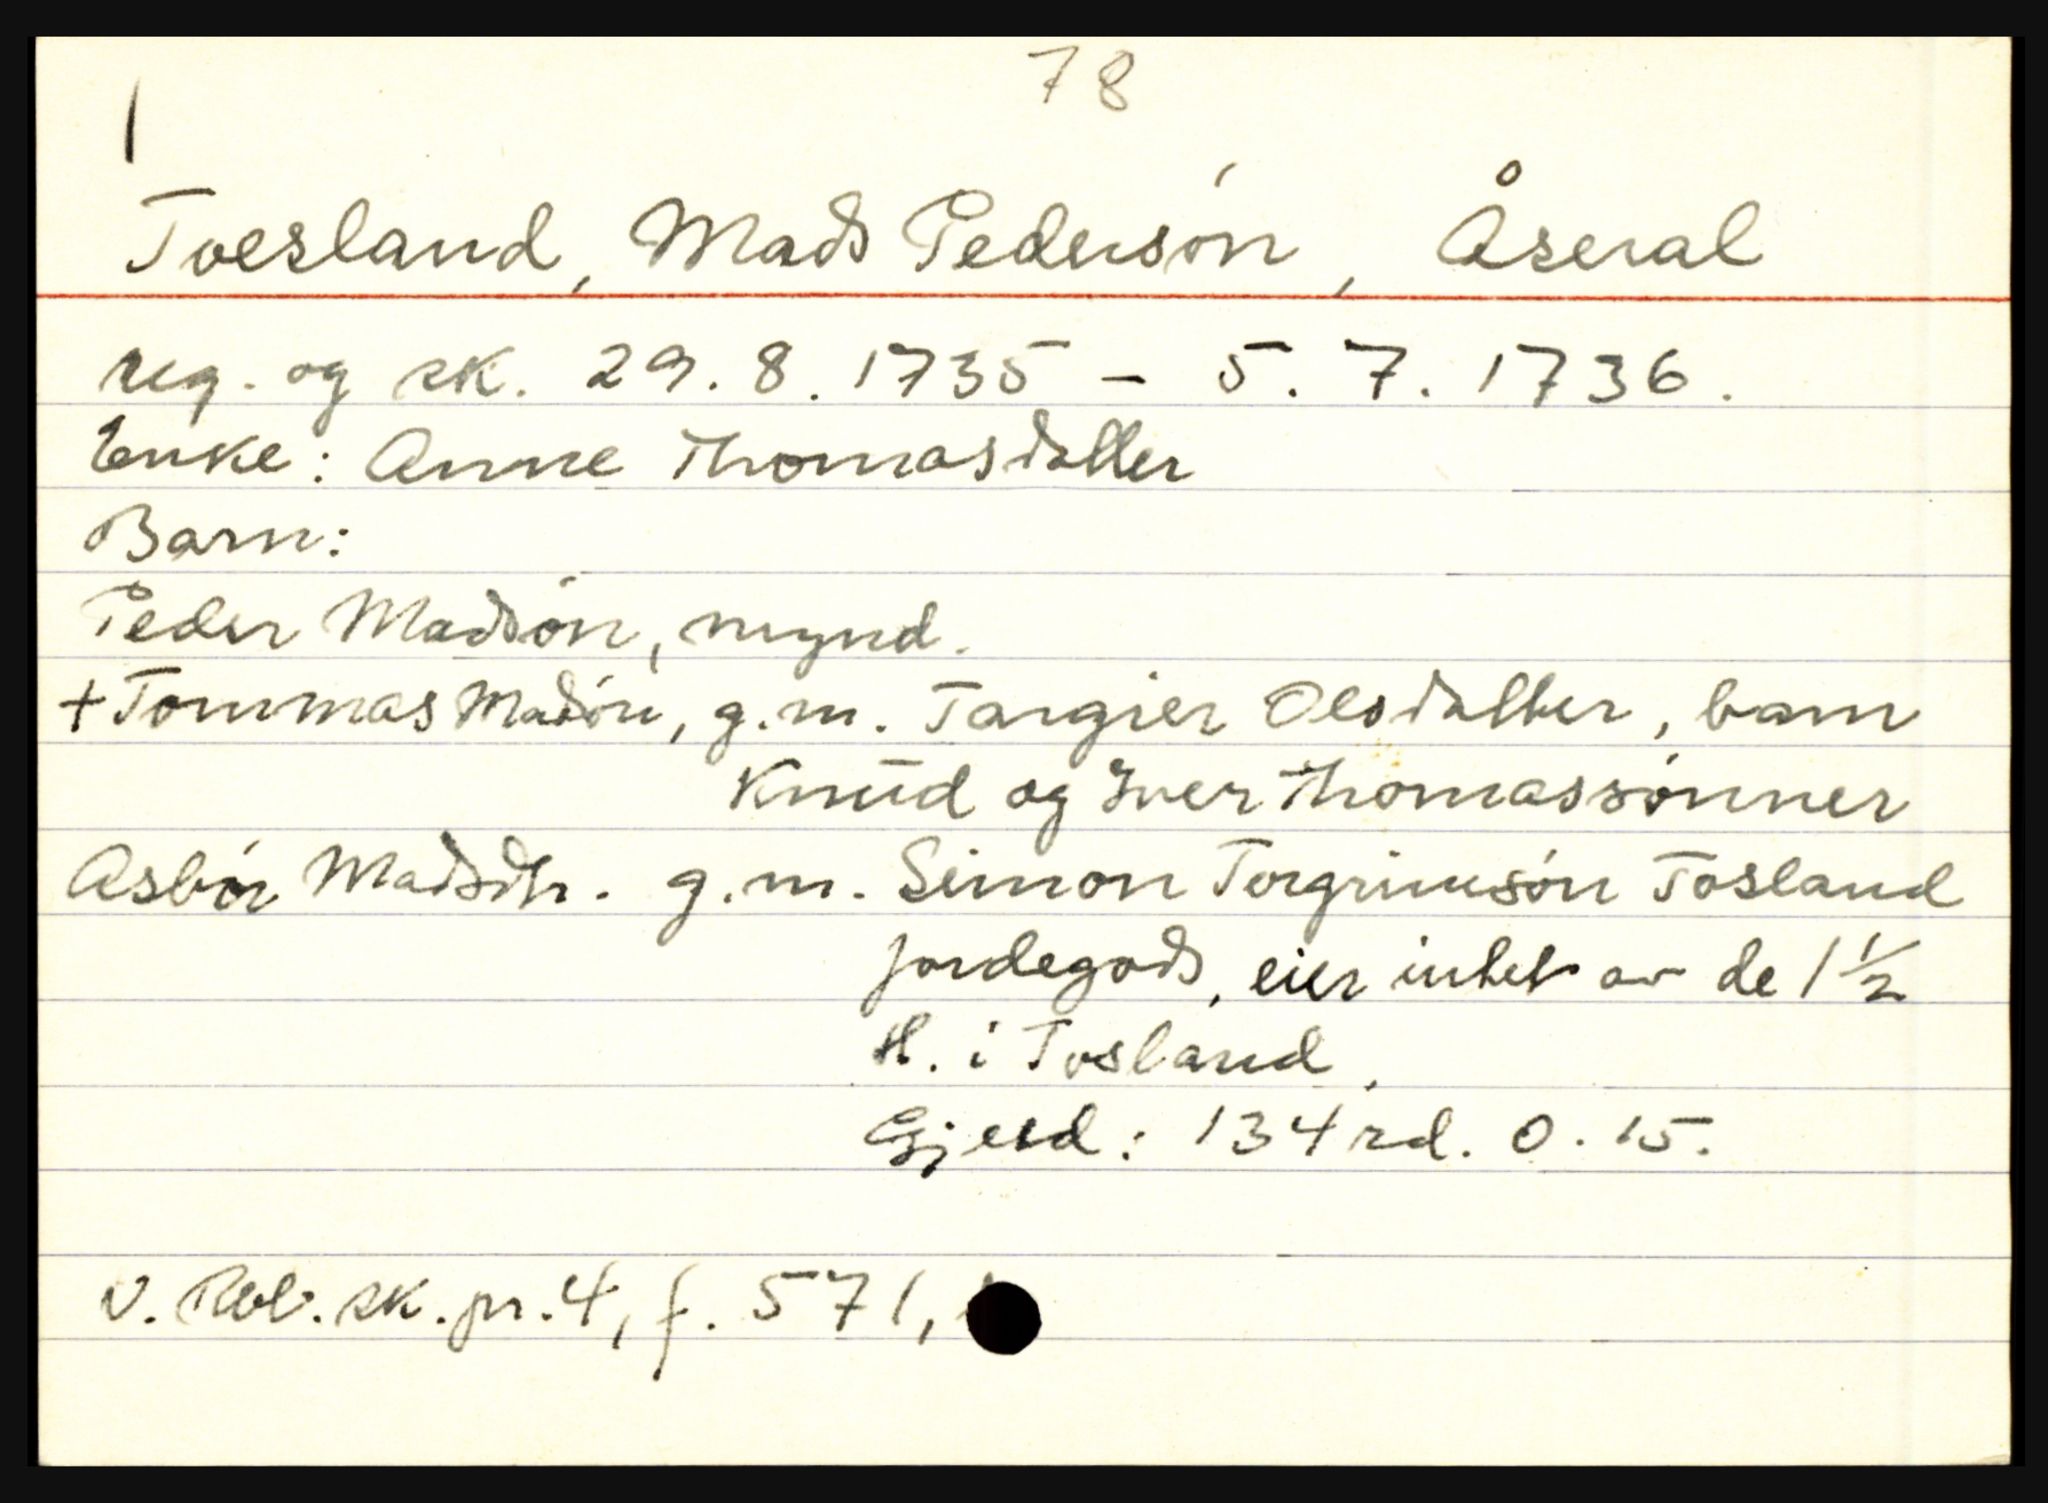 78
1
Toesland, Mads Pedersøn, Åseral
reg. og sk. 29. 8. 1735 - 5. 7. 1736.
Enke: Anne Thomasdatter
Barn:
Peder Madsøn, mynd.
+ Tommas Madsøn, g.m. Targier Olsdatter, barn
Knud og Iver Thomassønner
Asbør Madsdtr. g.m. Simon Torgrimsøn Tosland
jordegods, eier intet av de 1 1/2
H. i Tosland.
Gjeld: 134 rd. 0. 15.
v. Rbl. sk. pr. 4, f. 571,